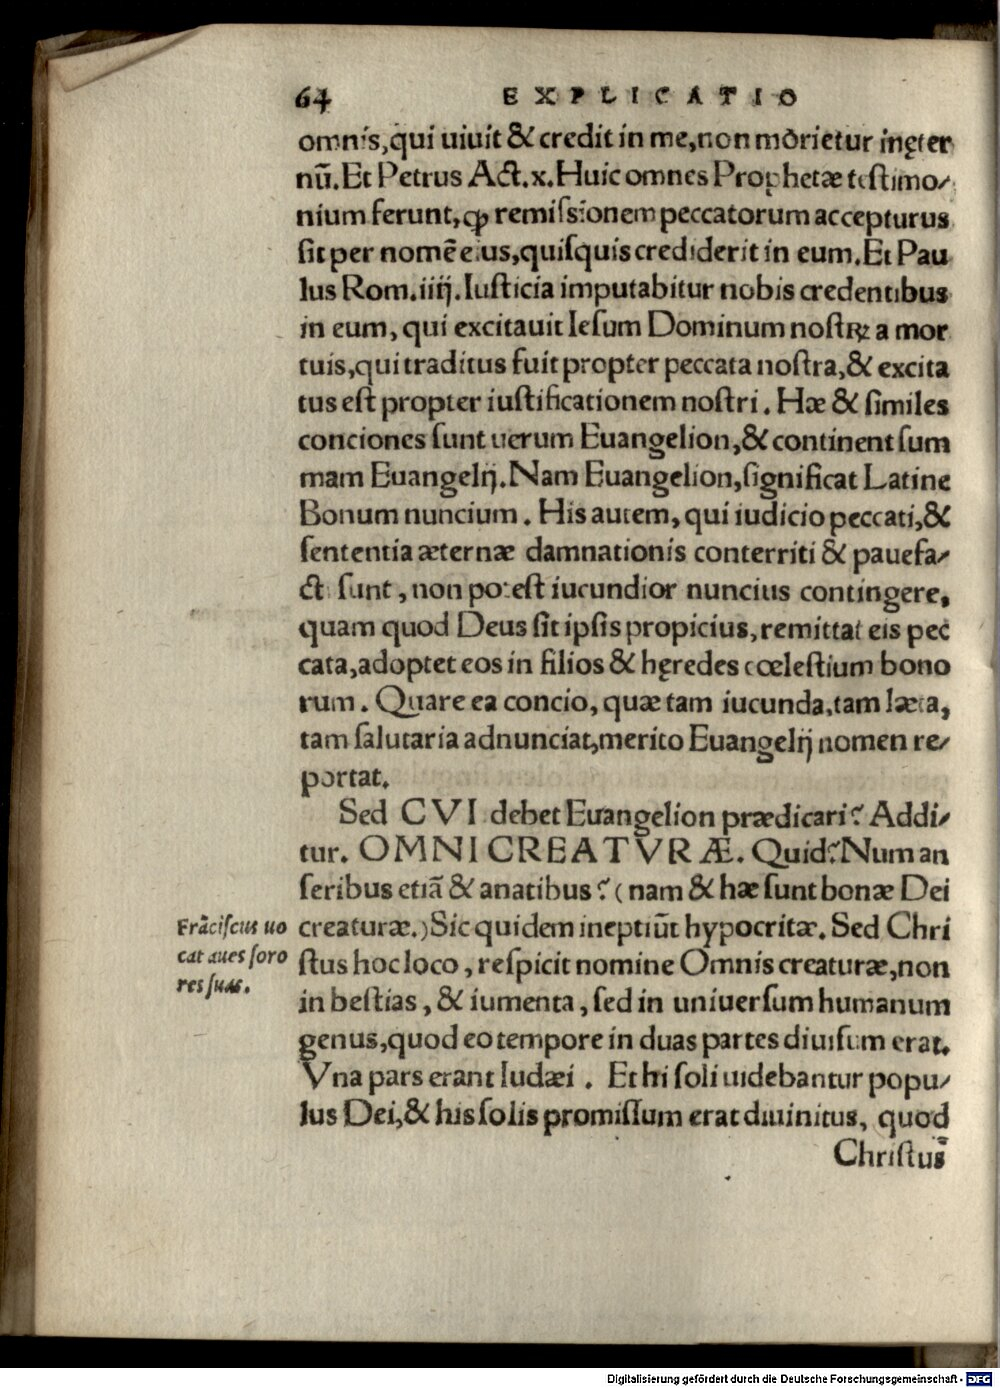 64 EXPLICATIO
omnis,qui uiuit & credit in me,non morietur inęter
nū.Et Petrus Act.x.Huic omnes Prophetæ testimo/
nium ferunt,ꝙ remissionem peccatorum accepturus
sit per nomē eius,quisquis crediderit in eum.Et Pau
lus Rom.iiij.Iusticia imputabitur nobis credentibus
in eum, qui excitauit Iesum Dominum nostꝝ a mor
tuis,qui traditus fuit propter peccata nostra,& excita
tus est propter iustificationem nostri. Hæ & similes
conciones sunt uerum Euangelion,& continent sum
mam Euangelij.Nam Euangelion,significat Latine
Bonum nuncium. His autem, qui iudicio peccati,&
sententia æternæ damnationis conterriti & pauefa/
cti sunt, non potest iucundior nuncius contingere,
quam quod Deus sit ipsis propicius,remittat eis pec
cata,adoptet eos in filios & hęredes cœlestium bono
rum. Quare ea concio, quæ tam iucunda,tam læta,
tam salutaria adnunciat,merito Euangelij nomen re/
portat.
Sed CVI debet Euangelion prædicari? Addi/
tur. OMNI CREATVRÆ. Quid?Num an
seribus etiā & anatibus? (nam & hæ sunt bonæ Dei
creaturæ.)Sic quidem ineptiūt hypocritæ. Sed Chri
stus hoc loco, respicit nomine Omnis creaturæ,non
in bestias, & iumenta, sed in uniuersum humanum
genus,quod eo tempore in duas partes diuisum erat.
Vna pars erant Iudæi. Et hi soli uidebantur popu/
lus Dei,& his solis promissum erat diuinitus, quod
Christus
Frāciscus uo
cat aues soro
res suas.
Digitalisierung gefördert durch die Deutsche Forschungsgemeinschaft - DFG